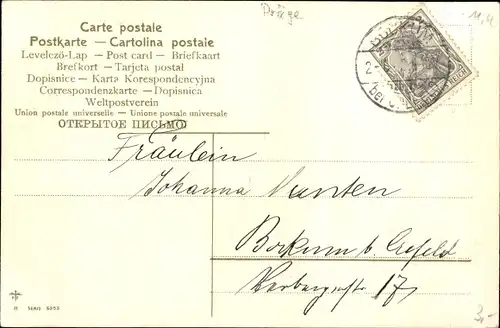 Präge
11,4
Carte postale
Postkarte — Cartolina postale
Levelező-Lap — Post card — Briefkaart
Brefkort — Tarjeta postal
Dopisnice — Karta Korespondencyjna
Correspondenzkarte — Dopisnica
Weltpostverein
Union postale universelle — Unione postale universale
ОТКРЫТОЕ ПИСЬМО
REICH
Fräulein
Johanna
Bockum b. Crefeld
17
3,-